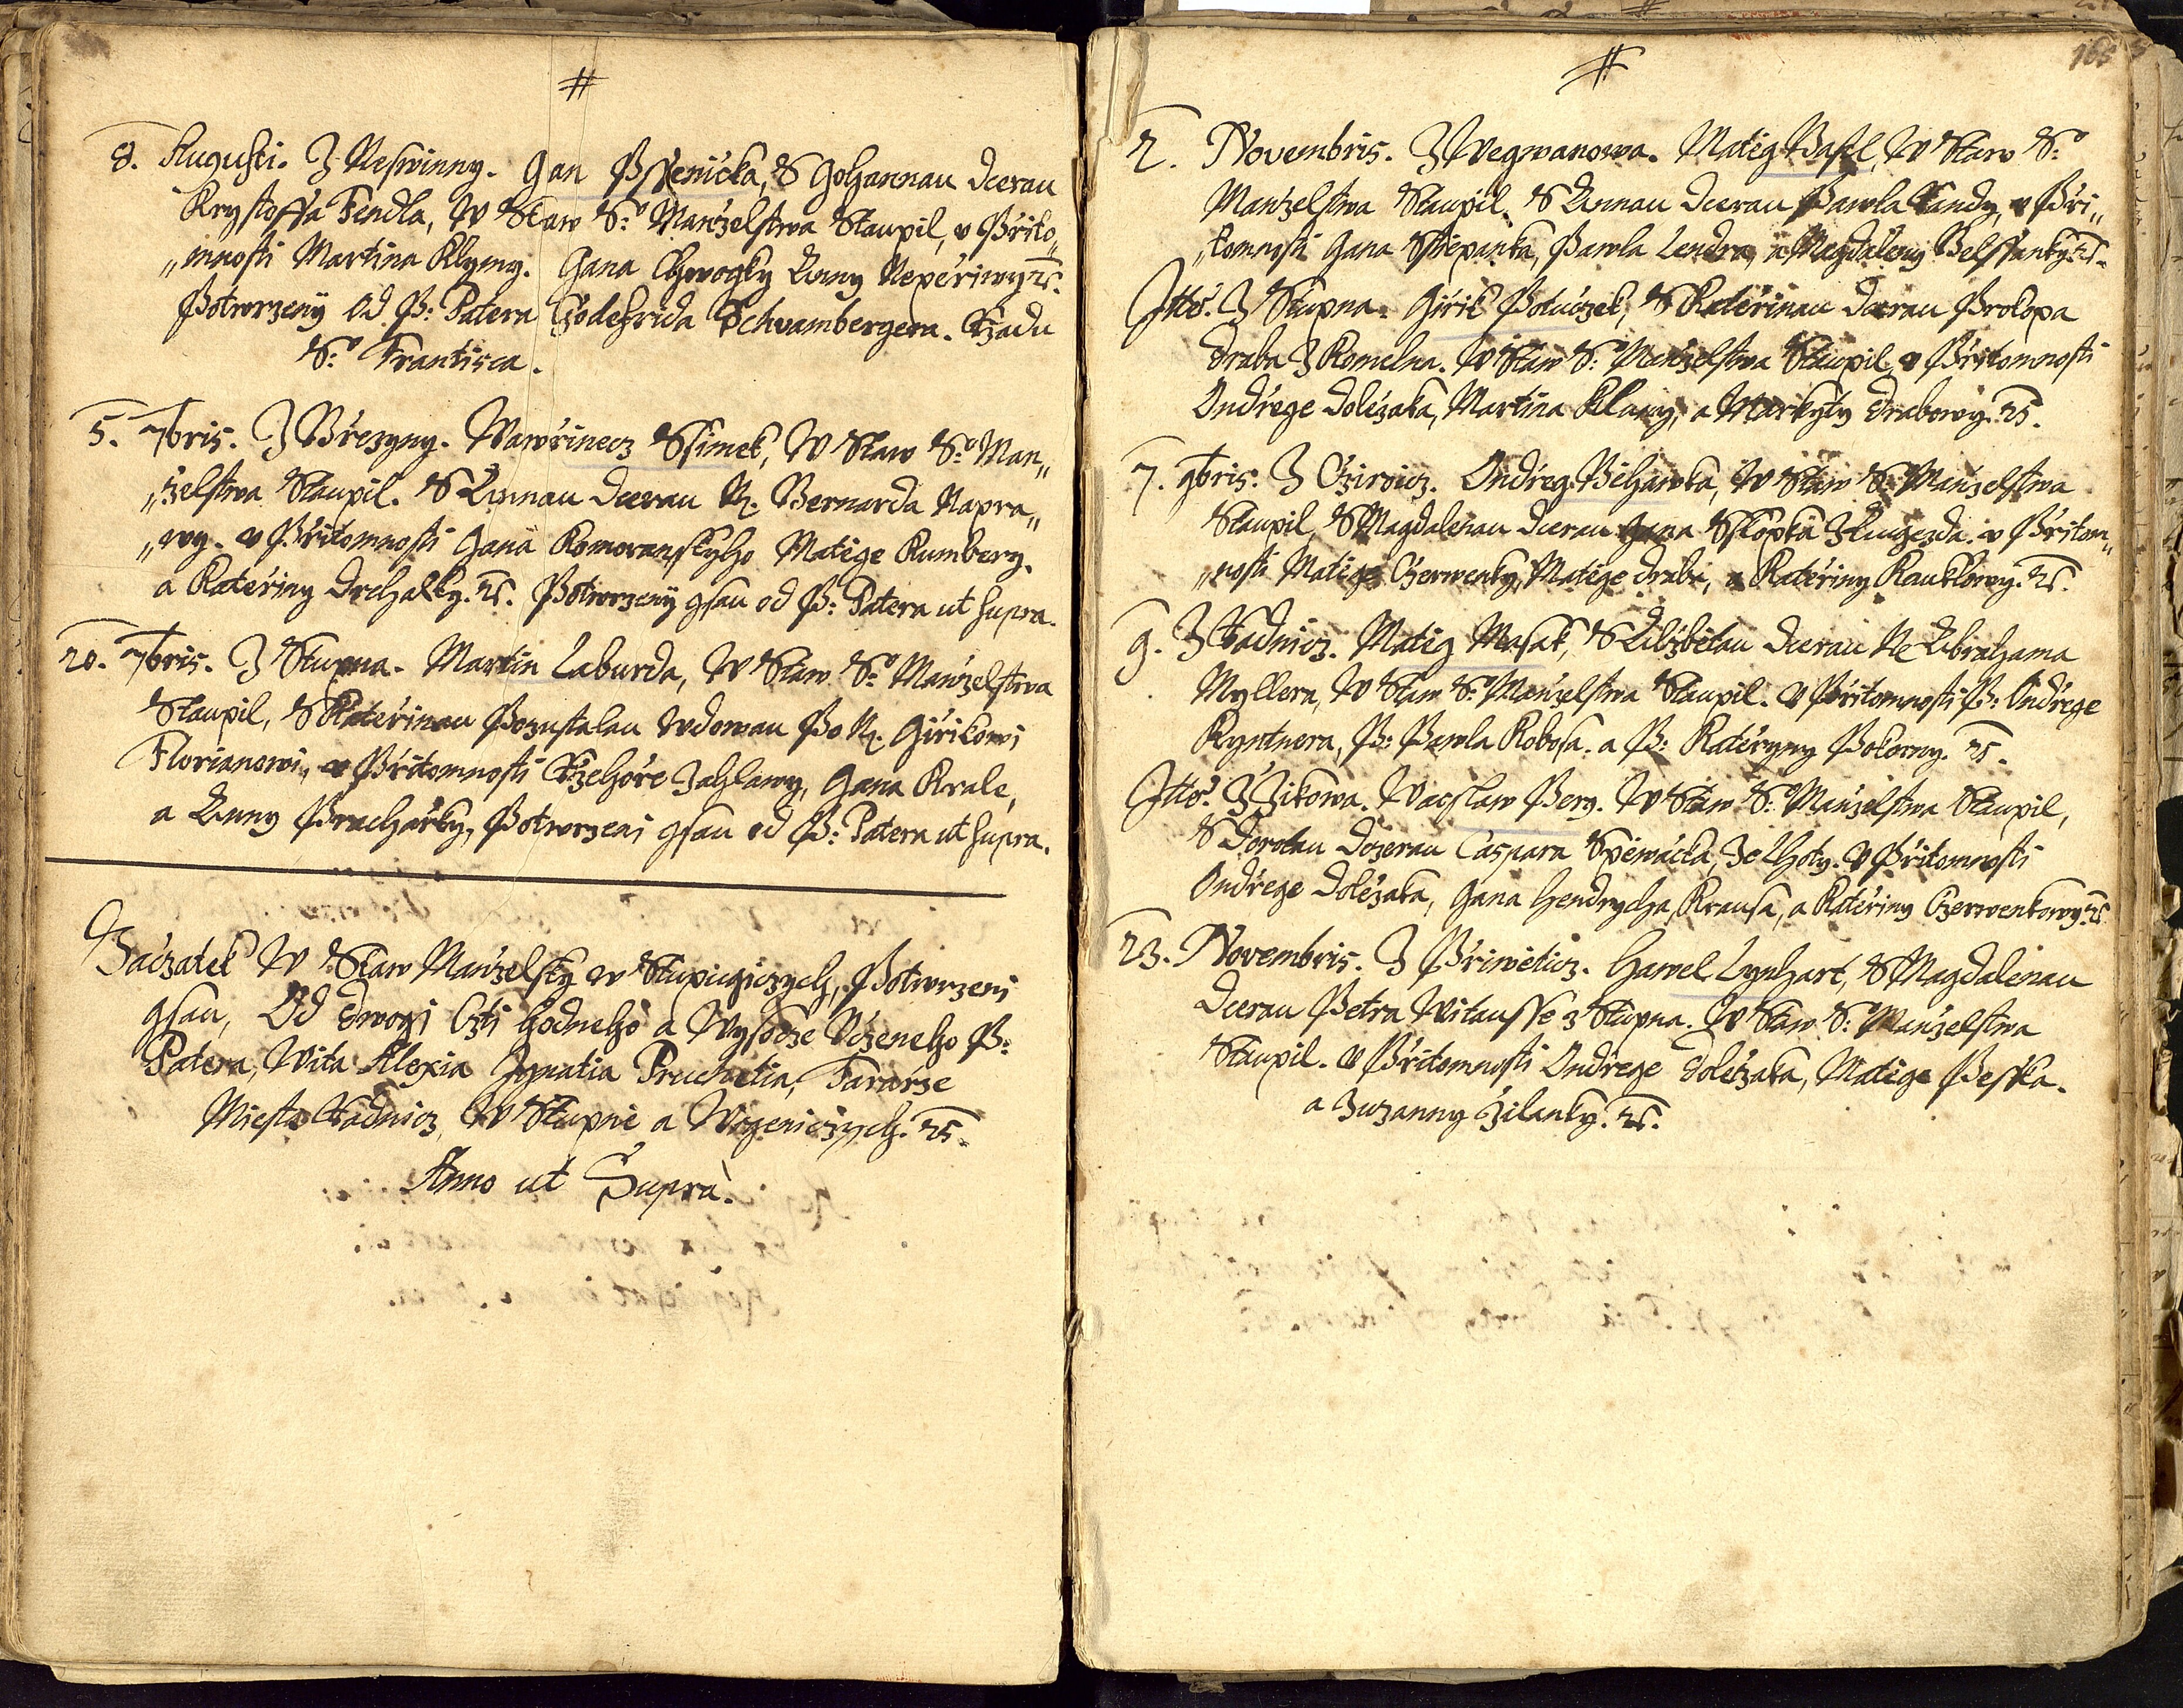 #
8. Augusti. Z Neswinny. Gan Pssenicka, S Gohannau dcerau
Krystoffa Fendla, W Staw S.º Manżelstwa Staupil, v Přito„
„mnosti Martina Klymy. Gana Chwogky Anny Nepeřiwy ꝛc.
Potwrzeny Od P: Patera Godefrida Schvambergera. Ržadu
S.º Frantisca.
5. 7bris. Z Březyny. Wawřinecz Ssimek, W Staw S.º Man„
„želstwa Staupil. S Annau dcerau N. Bernarda Napra„
„wy. v Přitomnosti Gana Komoranskyho Matěge Kumbery.
a Kateřiny Drchalky. ꝛc. Potwrzeny gsau od P: Patera ut supra.
20. 7bris. Z Stupna. Martin Laburda, W Staw S.º Manželstwa
Staupil, S Kateřinau Pozustalau wdowau Po N. Giřikowi
Florianowi, v Přitomnosti Ržehoře Jahlawy, Gana Krale,
a Anny Prachařky, Potwrzeni gsau od P: Patera ut supra.
Začzatek W Staw Manżelsky w Stupiugiczych, Potwrzeni
gsau, Od Dwogi Czti hodneho a Wysocze Vczeneho P:
Patera, Wita Alexia Ignatia Pruchetia, Fararże
Miesta Radnicz, W Stupnie a Wogeniczych. ꝛc.
Anno ut Suprà.
#
166
2. Novembris. Z Wegwanowa. Matěg Basl, W Staw S.º
Manżelstwa Staupil. S Annau dcerau Pawla Kandy, v Při„
„tomnosti Gana Sstiepanka, Pawla Lendra, a Magdaleny Belssanky ꝛc.
Itto. Z Stupna. Giřik Potuczek, S Kateřinau dcerau Prokopa
draba Z Komelna. W Staw S.º Manżelstwa Staupil, v Přitomnosti
Ondřege Doležala, Martina Klany, a Markyty Drabowy. ꝛc.
7. 9bris. Z Cziwicz. Ondřeg Běhawka, W Staw S.º Manżelstwa
Staupil, S Magdalenau dcerau Gana Sstopka Z Augezda. v Přitom„
„nosti Matěge Czerwenky, Matěge draba, a Kateřiny Kauklowy. ꝛc.
9. Z Radnicz. Matěg Masak, S Alzbětau dcerau N. Abrahama
Myllera, W Staw S.º Manżelstwa Staupil. v Přitomnosti P: Ondřege
Kyntnera, P: Pawla Kobosa. a P: Kateřyny Pokorny. ꝛc.
Itto. Z Zikowa. Wacslaw Berg. W Staw S.º Manżelstwa Staupil,
S Dorotau Dczerau Caspara Spěwacka, Ze Lhoty. v Přitomnosti
Ondřege Doležala, Gana Hendrycha Krausa, a Kateřiny Czerwenkowy ꝛc.
23. Novembris. Z Přiwěticz. Hawel Lynhart, S Magdalenau
dcerau Petra Witausse z Stupna. W Staw S.º Manżelstwa
Staupil. v Přitomnosti Ondřege Doležala, Matěge Pesska.
a Zuzanny Zilanky. ꝛc.